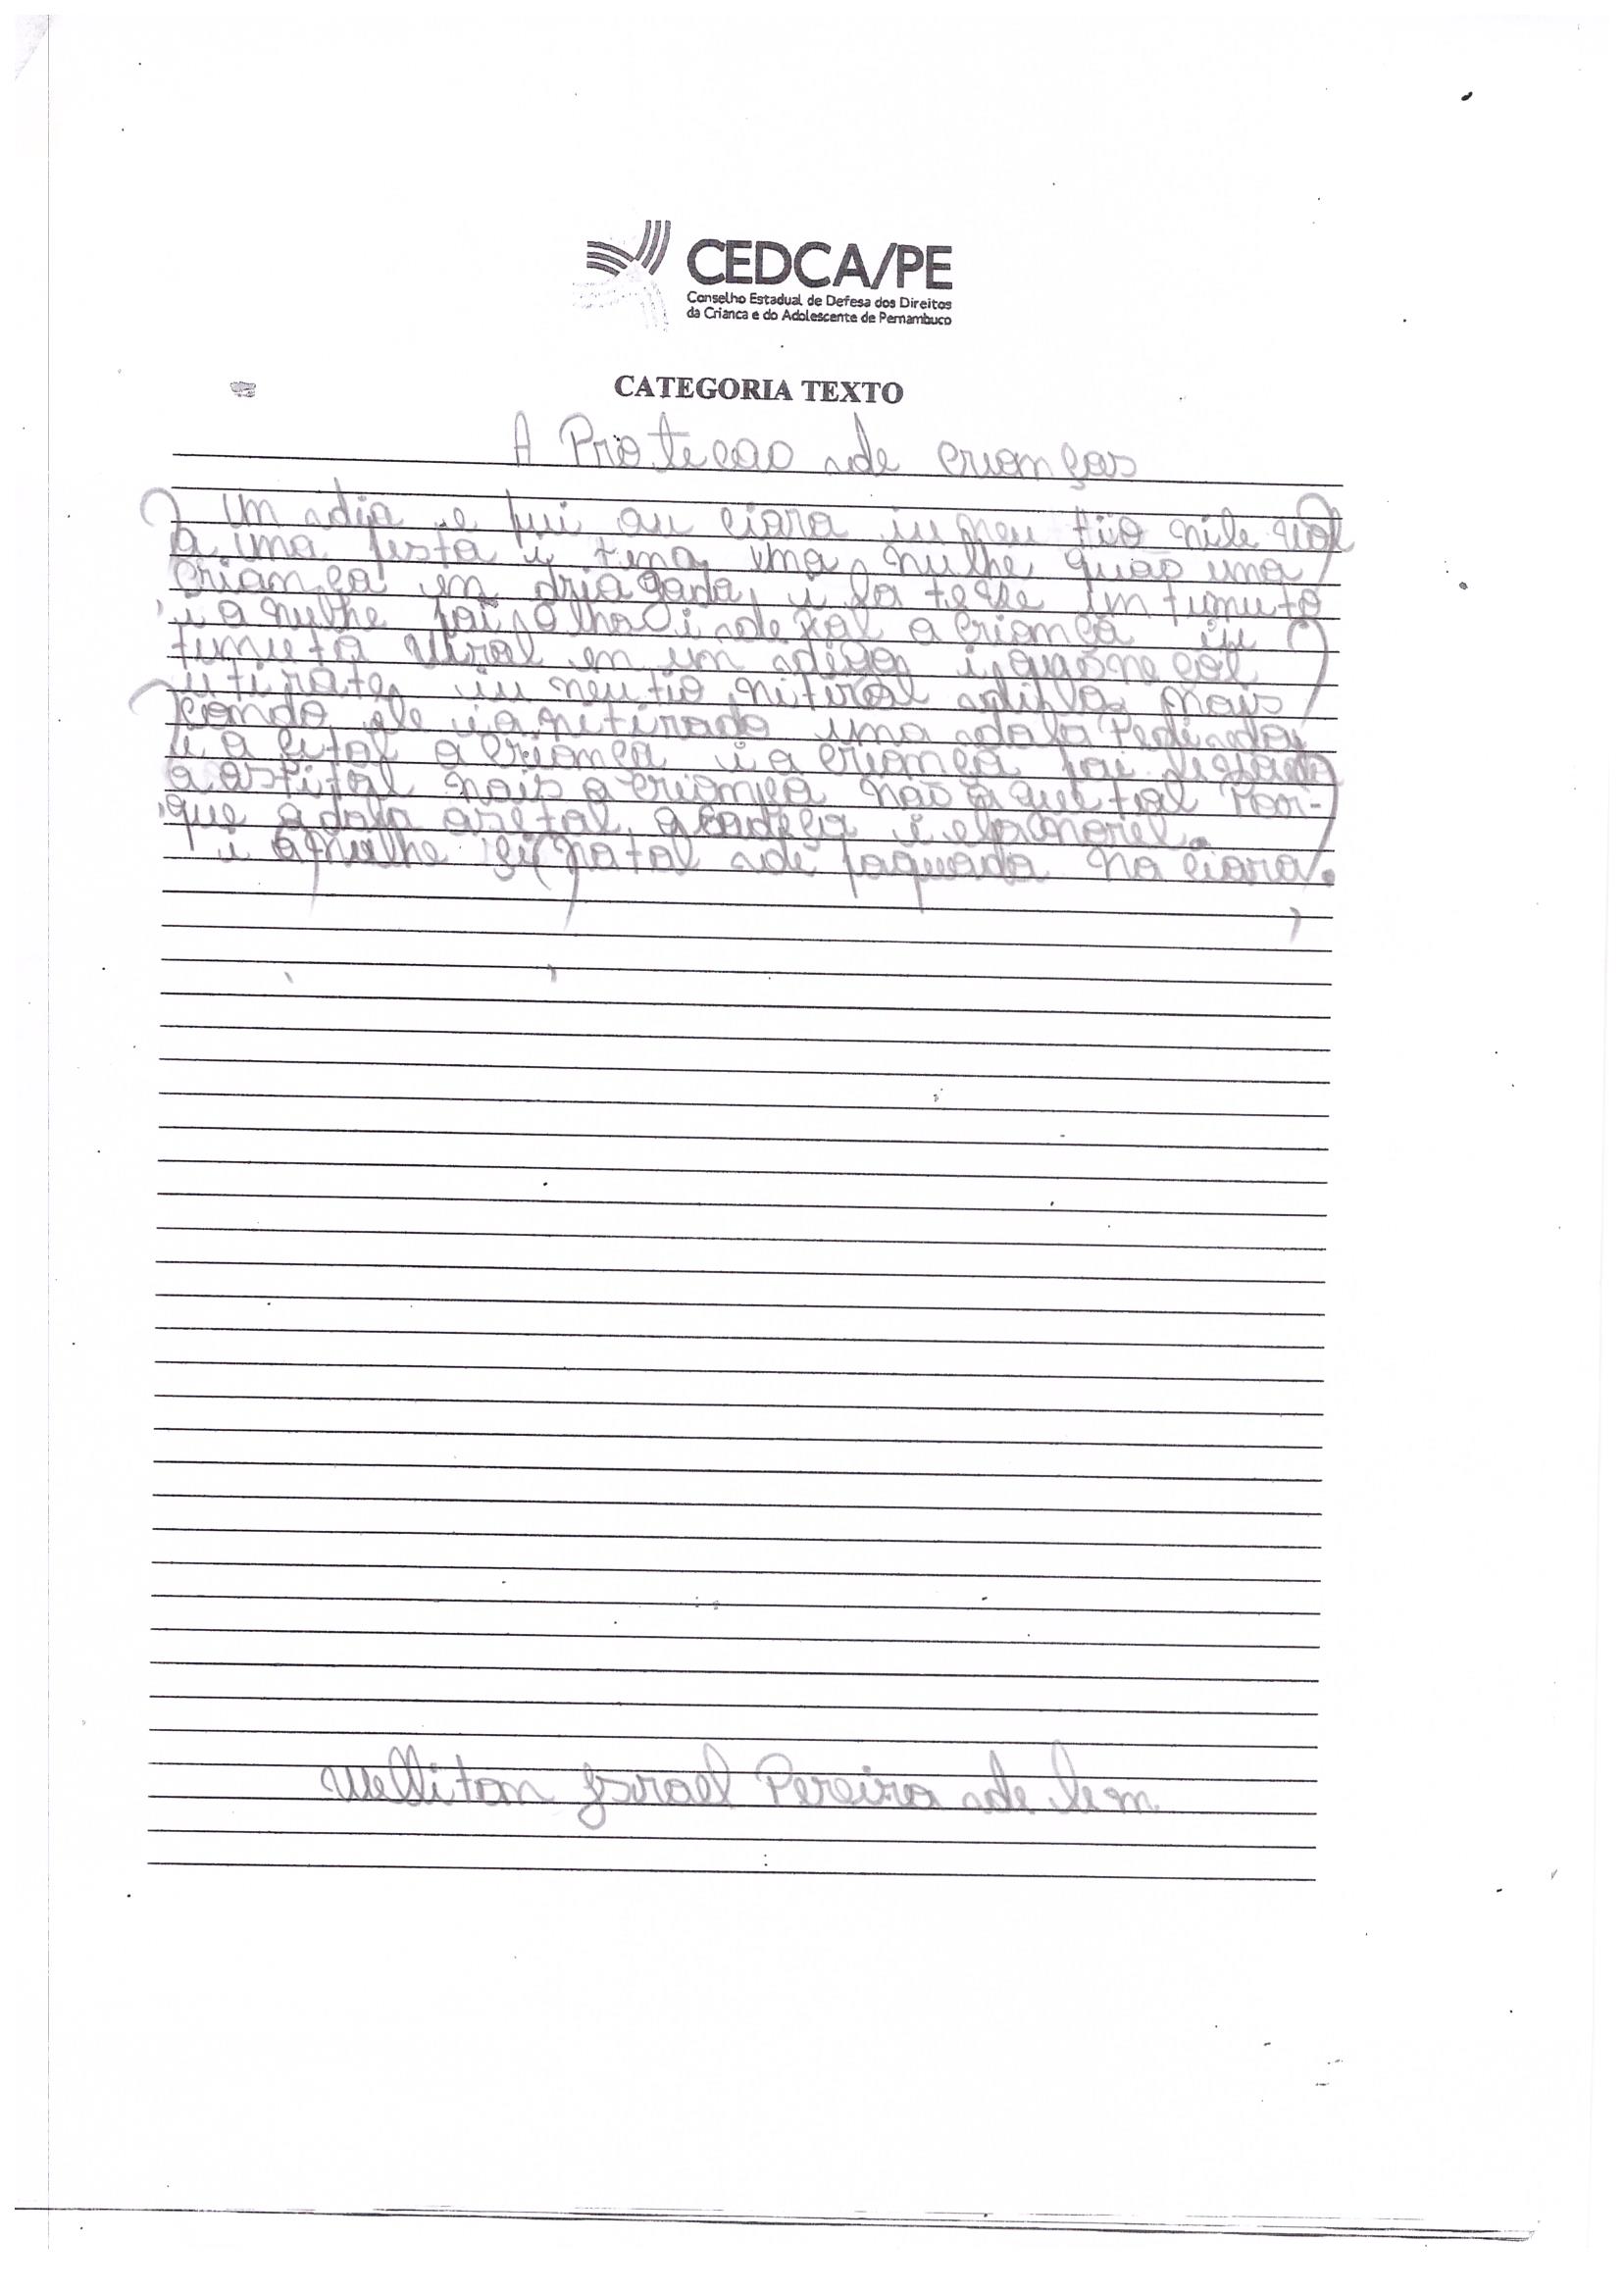 CEDCA/PE
Conselho Estadual de Defesa dos Direitos
da Crianca e do Adolescente de Pernambuco
CATEGORIA TEXTO
A Protecao de crianças
Um dia e fui au ciara iu meu tiio mile
a uma festa i tena uma mulhe quao uma
criança en driagada i la teve im tumuto
i a mulhe foi olha i dexol a criança iu
tumuto virol en um i quaone col
u tirate iu neu tio mais
condo ele ia mitirado uma dala Pedida
a criança i a criança foi
a ospital mais a criança não Por-
que a dala a cadeça i ela morel.
i a mulhe si matol de faquada na ciara.
Welliton Israel Pereira de Lem